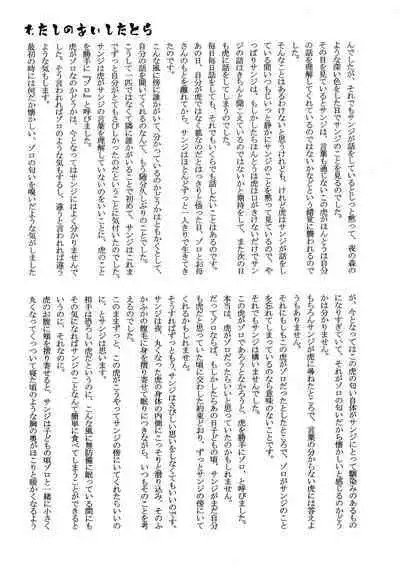 わたしのあいしたとら
んでしたが、それでもサンジが話をしているとじっと黙って、夜の森の
ような深い色をした目でサンジのことを見るのでした。
その目を見ているとサンジは、言葉も通じないこの虎がほんとうは自分
の話を理解してくれているのではないかという錯覚に襲われるので
した。
そんなことはあるわけないと思うけれども、けれど虎はサンジが話をし
ている間いつもじいっと静かにサンジのことを見て黙っているので、や
っぱりサンジは、もしかしたらほんとうは虎は口がきけないだけでサン
ジの話はきちんと聞こえているのではないかと期待をして、また次の日
も虎に話をしてしまうのでした。
毎日話をしても、それでもいくらでも話したいことはあるのでした。
あの日、自分が虎ではなく狐なのだとはっきりと悟った日、ゾロとお母
さんのもとを離れてから、サンジはほとんどずっと一人きりで生きてき
たのです。
こんな風に傍に誰かがいて、分かっているのかどうかはともかくとして、
自分の話を聞いてくれるのなんて、もう随分久しぶりのことでした。
こうして一匹ではなくて隣に虎がいてくれて初めて、サンジはこれま
でずっと自分がとてもさびしかったのだということに気付いたのでした。
サンジは虎がサンジの言葉を理解していないのをいいことに、虎のこと
を勝手に「ゾロ」と呼びました。
虎がゾロなのかどうかは、今となってはサンジにはよく分かりませんで
した。そう言われればゾロのような気もするし、違うと言われれば違う
ような気もします。
最初の時には何だか懐かしい、ゾロの匂いを嗅いだような気がしました
が、今となってはこの虎の匂い自体がサンジにとって馴染みのあるもの
になりすぎていて、それがゾロの匂いだから懐かしいと感じるのかどう
かは分かりません。
もちろんサンジが虎に尋ねたところで、言葉の分からない虎には答えよ
うがありませんし、
それにもしもこの虎がゾロだったとしたところで、ゾロがサンジのこと
を忘れてしまっているのなら意味のないことです。
それでもサンジは構いませんでした。
この虎がゾロであろうとなかろうと、虎を勝手にゾロ、と呼びました。
本当は、虎がゾロだったらいいと思っていたのかもしれません。
だってゾロならば、もしかしたらあの日子どもの頃、サンジが自分のこと
も虎だと思っていた頃に交わした約束どおり、ずっとサンジの傍にいて
くれるかもしれません。
そうすればずっともう、サンジはさびしい思いをしなくてもいいのです。
サンジは夜、丸くなった虎の身体の内側にこっそりと滑り込み、そのふ
かふかの腹毛に身を擦り寄せて眠りにつきながら、いつもそのことを考
えるのでした。
このままずっと、この虎がこうやってサンジの傍にいてくれたらいいの
に、とサンジは思います。
相手は恐ろしい虎だというのに、こんな風に無防備に眠っている間にも
その気になればサンジのことなんて簡単に食べてしまうことができると
いうのに、それなのに。
虎のお腹に頬を擦り寄せると、サンジは子どもの頃ゾロと一緒に小さく
丸くなってくっついて寝た頃のような胸の奥がほこりと暖かくなるよう